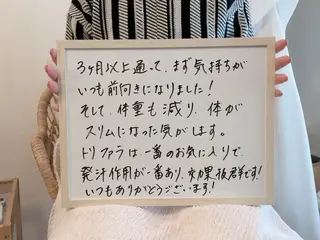 3ヶ月以上通って、まず気持ちが
いつも前向きになりました！
そして、体重も減り、体が
スリムになった気がします。
トリファラは、一番のお気に入りで、
発汗作用が一番あり、効果抜群です！
いつもありがとうございます！